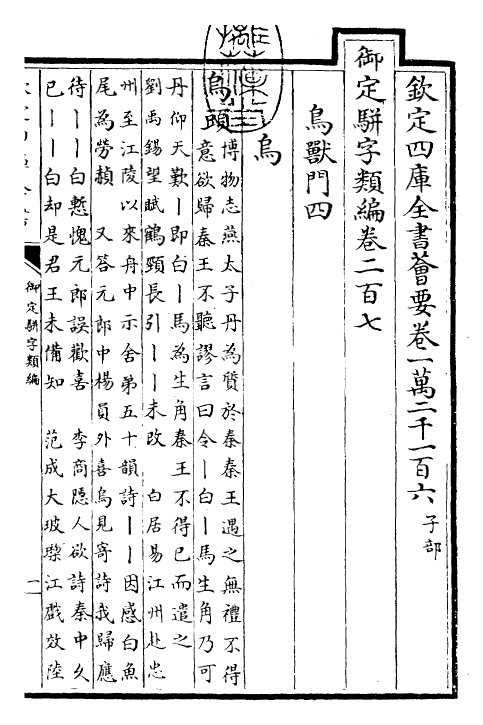 欽定四庫全書薈要卷一萬二千一百六 子部
御定駢字類編卷二百七
鳥獸門四
烏
烏頭
博物志燕太子丹為質於秦秦王遇之無禮不得
意欲歸秦王不聽謬言曰令丨白丨馬生角乃可
丹仰天歎丨即白丨馬為生角秦王不得已而遣之
劉禹錫望賦鶴頸長引丨丨未改 白居易江州赴忠
州至江陵以來舟中示舍弟五十韻詩丨丨因感白魚
尾為勞赬 又答元郎中楊員外喜烏見寄詩我歸應
待丨丨白慙愧元郎誤歡喜 李商隱人欲詩秦中久
已丨丨白却是君王未備知 范成大玻瓈江戲效陸
御定駢字類編
一